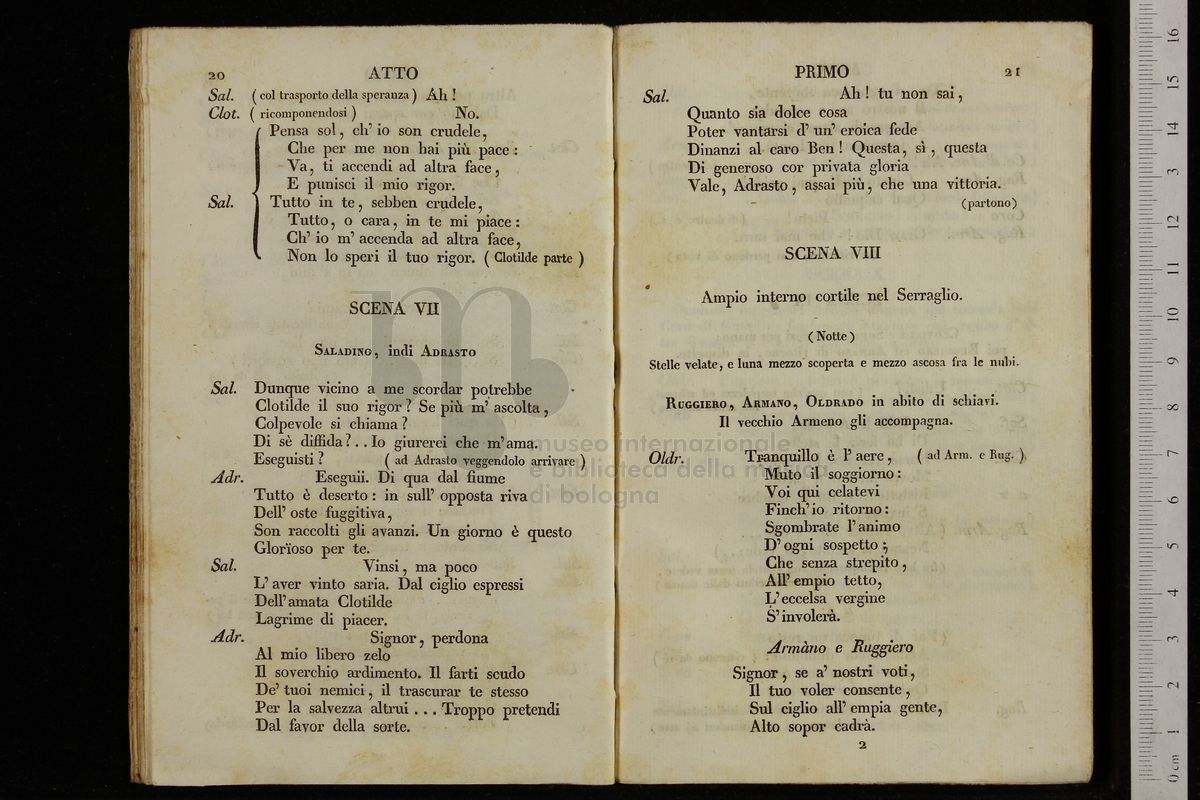 20 ATTO
Sal. ( col trasporto della speranza ) Ah !
Clot. ( ricomponendosi ) No.
Pensa sol, ch' io son crudele,
Che per me non hai più pace :
Va, ti accendi ad altra face,
E punisci il mio rigor.
Sal. Tutto in te, sebben crudele,
Tutto, o cara, in te mi piace :
Ch' io m' accenda ad altra face,
Non lo speri il tuo rigor. ( Clotilde parte )
SCENA VII
SALADINO, indi ADRASTO
Sal. Dunque vicino a me scordar potrebbe
Clotilde il suo rigor ? Se più m' ascolta,
Colpevole si chiama ?
Di sè diffida ? . . Io giurerei che m' ama.
Eseguisti ? ( ad Adrasto veggendolo arrivare )
Adr. Eseguii. Di qua dal fiume
Tutto è deserto : in sull' opposta riva
Dell' oste fuggitiva,
Son raccolti gli avanzi. Un giorno è questo
Glorïoso per te.
Sal. Vinsi, ma poco
L' aver vinto saria. Dal ciglio espressi
Dell' amata Clotilde
Lagrime di piacer.
Adr. Signor, perdona
Al mio libero zelo
Il soverchio ardimento. Il farti scudo
De' tuoi nemici, il trascurar te stesso
Per la salvezza altrui . . . Troppo pretendi
Dal favor della sorte.
PRIMO 21
Sal. Ah ! tu non sai,
Quanto sia dolce cosa
Poter vantarsi d' un' eroica fede
Dinanzi al caro Ben ! Questa, sì, questa
Di generoso cor privata gloria
Vale, Adrasto, assai più, che una vittoria.
(partono)
SCENA VIII
Ampio interno cortile nel Serraglio.
( Notte )
Stelle velate, e luna mezzo scoperta e mezzo ascosa fra le nubi.
RUGGIERO, ARMANO, OLDRADO in abito di schiavi.
Il vecchio Armeno gli accompagna.
Oldr. Tranquillo è l' aere, ( ad Arm. e Rug. )
Muto il soggiorno :
Voi qui celatevi
Finch' io ritorno :
Sgombrate l' animo
D' ogni sospetto ;
Che senza strepito,
All' empio tetto,
L' eccelsa vergine
S' involerà.
Armàno e Ruggiero
Signor, se a' nostri voti,
Il tuo voler consente,
Sul ciglio all' empia gente,
Alto sopor cadrà.
2
museo internazionale
e biblioteca della musica
di bologna
0 cm 1 2 3 4 5 6 7 8 9 10 11 12 13 14 15 16